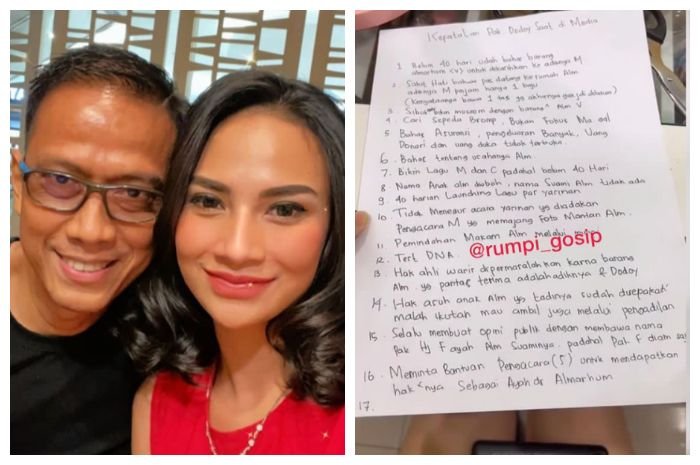 Kepatalan Pak Doddy Saat di Media
1. Belum 40 hari udah bahas barang
almarhum (V) untuk dikasihkan ke adanya M
2. Sakit Hati bahwa pas datang kerumah Alm
adanya M pinjam hanya 1 baju
(Kenyataannya bawa 1 tas yg akhirnya
3. Sibuk bikin museum dengan barang² Alm V.
4. Cari Sepeda Bromp, Bukan Fokus
5 Bahas Asuransi, pengeluaran Banyak, Uang
Donasi dan uang duka tidak terbuka.
6. Bahas tentang usahanya Alm.
7. Bikin Lagu M dan C padahal belum 40 Hari
8 Nama Anak alm dirubah, nama Suami Alm tidak ada
9. 40 harian Launching Lagu
10. Tidak Menegur acara yasinan yg diadakan
Pengacara M yg memajang Foto Mantan Alm.
11. Pemindahan Makam Alm melalui
12. Tert DNA.
@rumpi_gosip
13. Hak ahli waris dipermasalahkan karna barang
Alm. yg pantas terima adalah adiknya & Doddy
14. Hak asuh anak Alm yg tadinya sudah disepakati
malah ikutan mau ambil juga melalui pengadilan
15. Selalu membuat opini publik dengan membawa nama
Pak Hj F ayah Alm Suaminya. padahal Pak F diam
16. Meminta Bantuan Pengacara (5) untuk mendapatkan
hak²nya Sebagai Ayah dr Almarhum.
17.